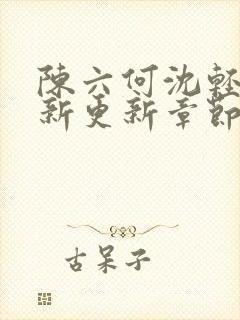 陳六何沈輕
新更新章節
古呆子